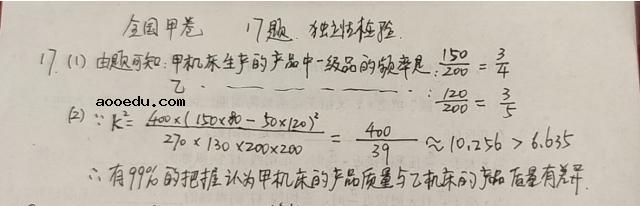 全国甲卷 17题. 独立性检验.
17.(1) 由题可知:甲机床生产的产品中一级品的频率是:150/200 = 3/4
乙 — — — — — — — :120/200 = 3/5
aooedu.com
(2) ∵ K² = 400×(150×80-50×120)²/270×130×200×200 = 400/39 ≈ 10.256 > 6.635
∴ 有99%的把握认为甲机床的产品质量与乙机床的产品质量有差异.